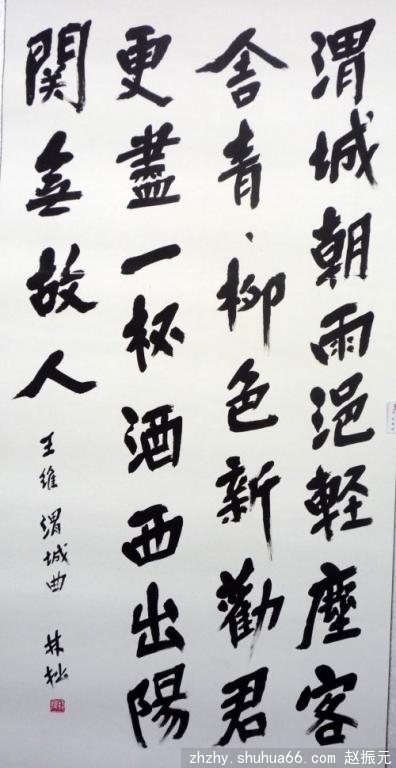 渭城朝雨浥軽塵客
舍青、柳色新勸君
更盡一杯酒西出陽
関無故人
王維 渭城曲 林
zhzhy.shuhua66.com 赵振元